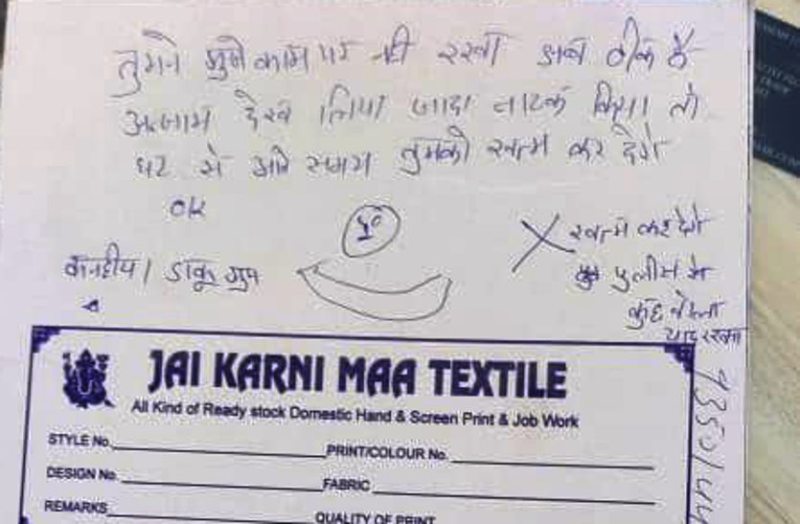 तुमने मुझे काम पर नही रखा अब ठीक है
अन्जाम देख लिया जादा नाटक किया तो
घर से आते समय तुमको खत्म कर देगे
ok
खत्म कर देगे
पुलीस मे
डाकू ग्रुप
याद रखना
JAI KARNI MAA TEXTILE
All Kind of Ready stock Domestic Hand & Screen Print & Job Work
STYLE No. PRINT/COLOUR No.
DESIGN No. FABRIC
REMARKS QUALITY OF PRINT